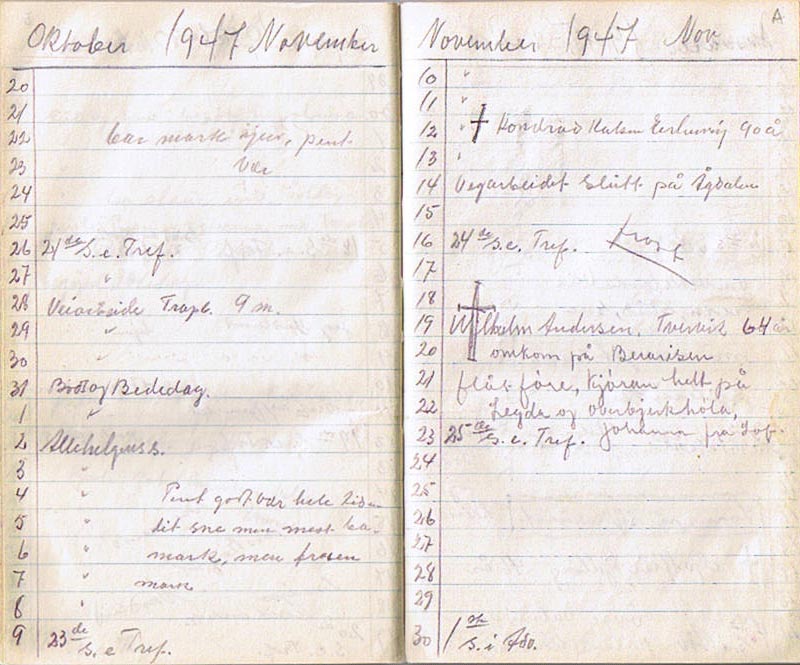 Oktober 1947 November
20
21
22 bar mark igjen, pent
23 Vær
24
25
26 21de S. e. Tref.
27 "
28 Veiarbeide 9 m.
29 "
30 "
31 Bods og Bededag.
1 "
2 Allehelgenss.
3 "
4 " Pent godt vær hele tiden
5 " lit sne men mest ba-
6 " mark, men frosen
7 " mark
8 "
9 23de S. e Tref.
November 1947 Nov
A
10 "
11 "
12 " † 90 å
13 "
14 Vegarbeidet Slutt på Ågdalen
15
16 24de S. e. Tref.
17
18
19 † Wilhelm Andersen, Tvervik 64 år
20 omkom på
21 flåt føre, kjøran helt på
22 og
23 25de S. e. Tref. Johanna fra
24
25
26
27
28
29
30 1ste S. i Adv.